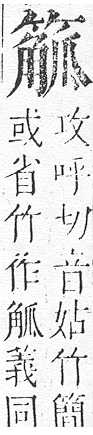 䉉
攻呼切音姑竹簡
或省竹作觚義同